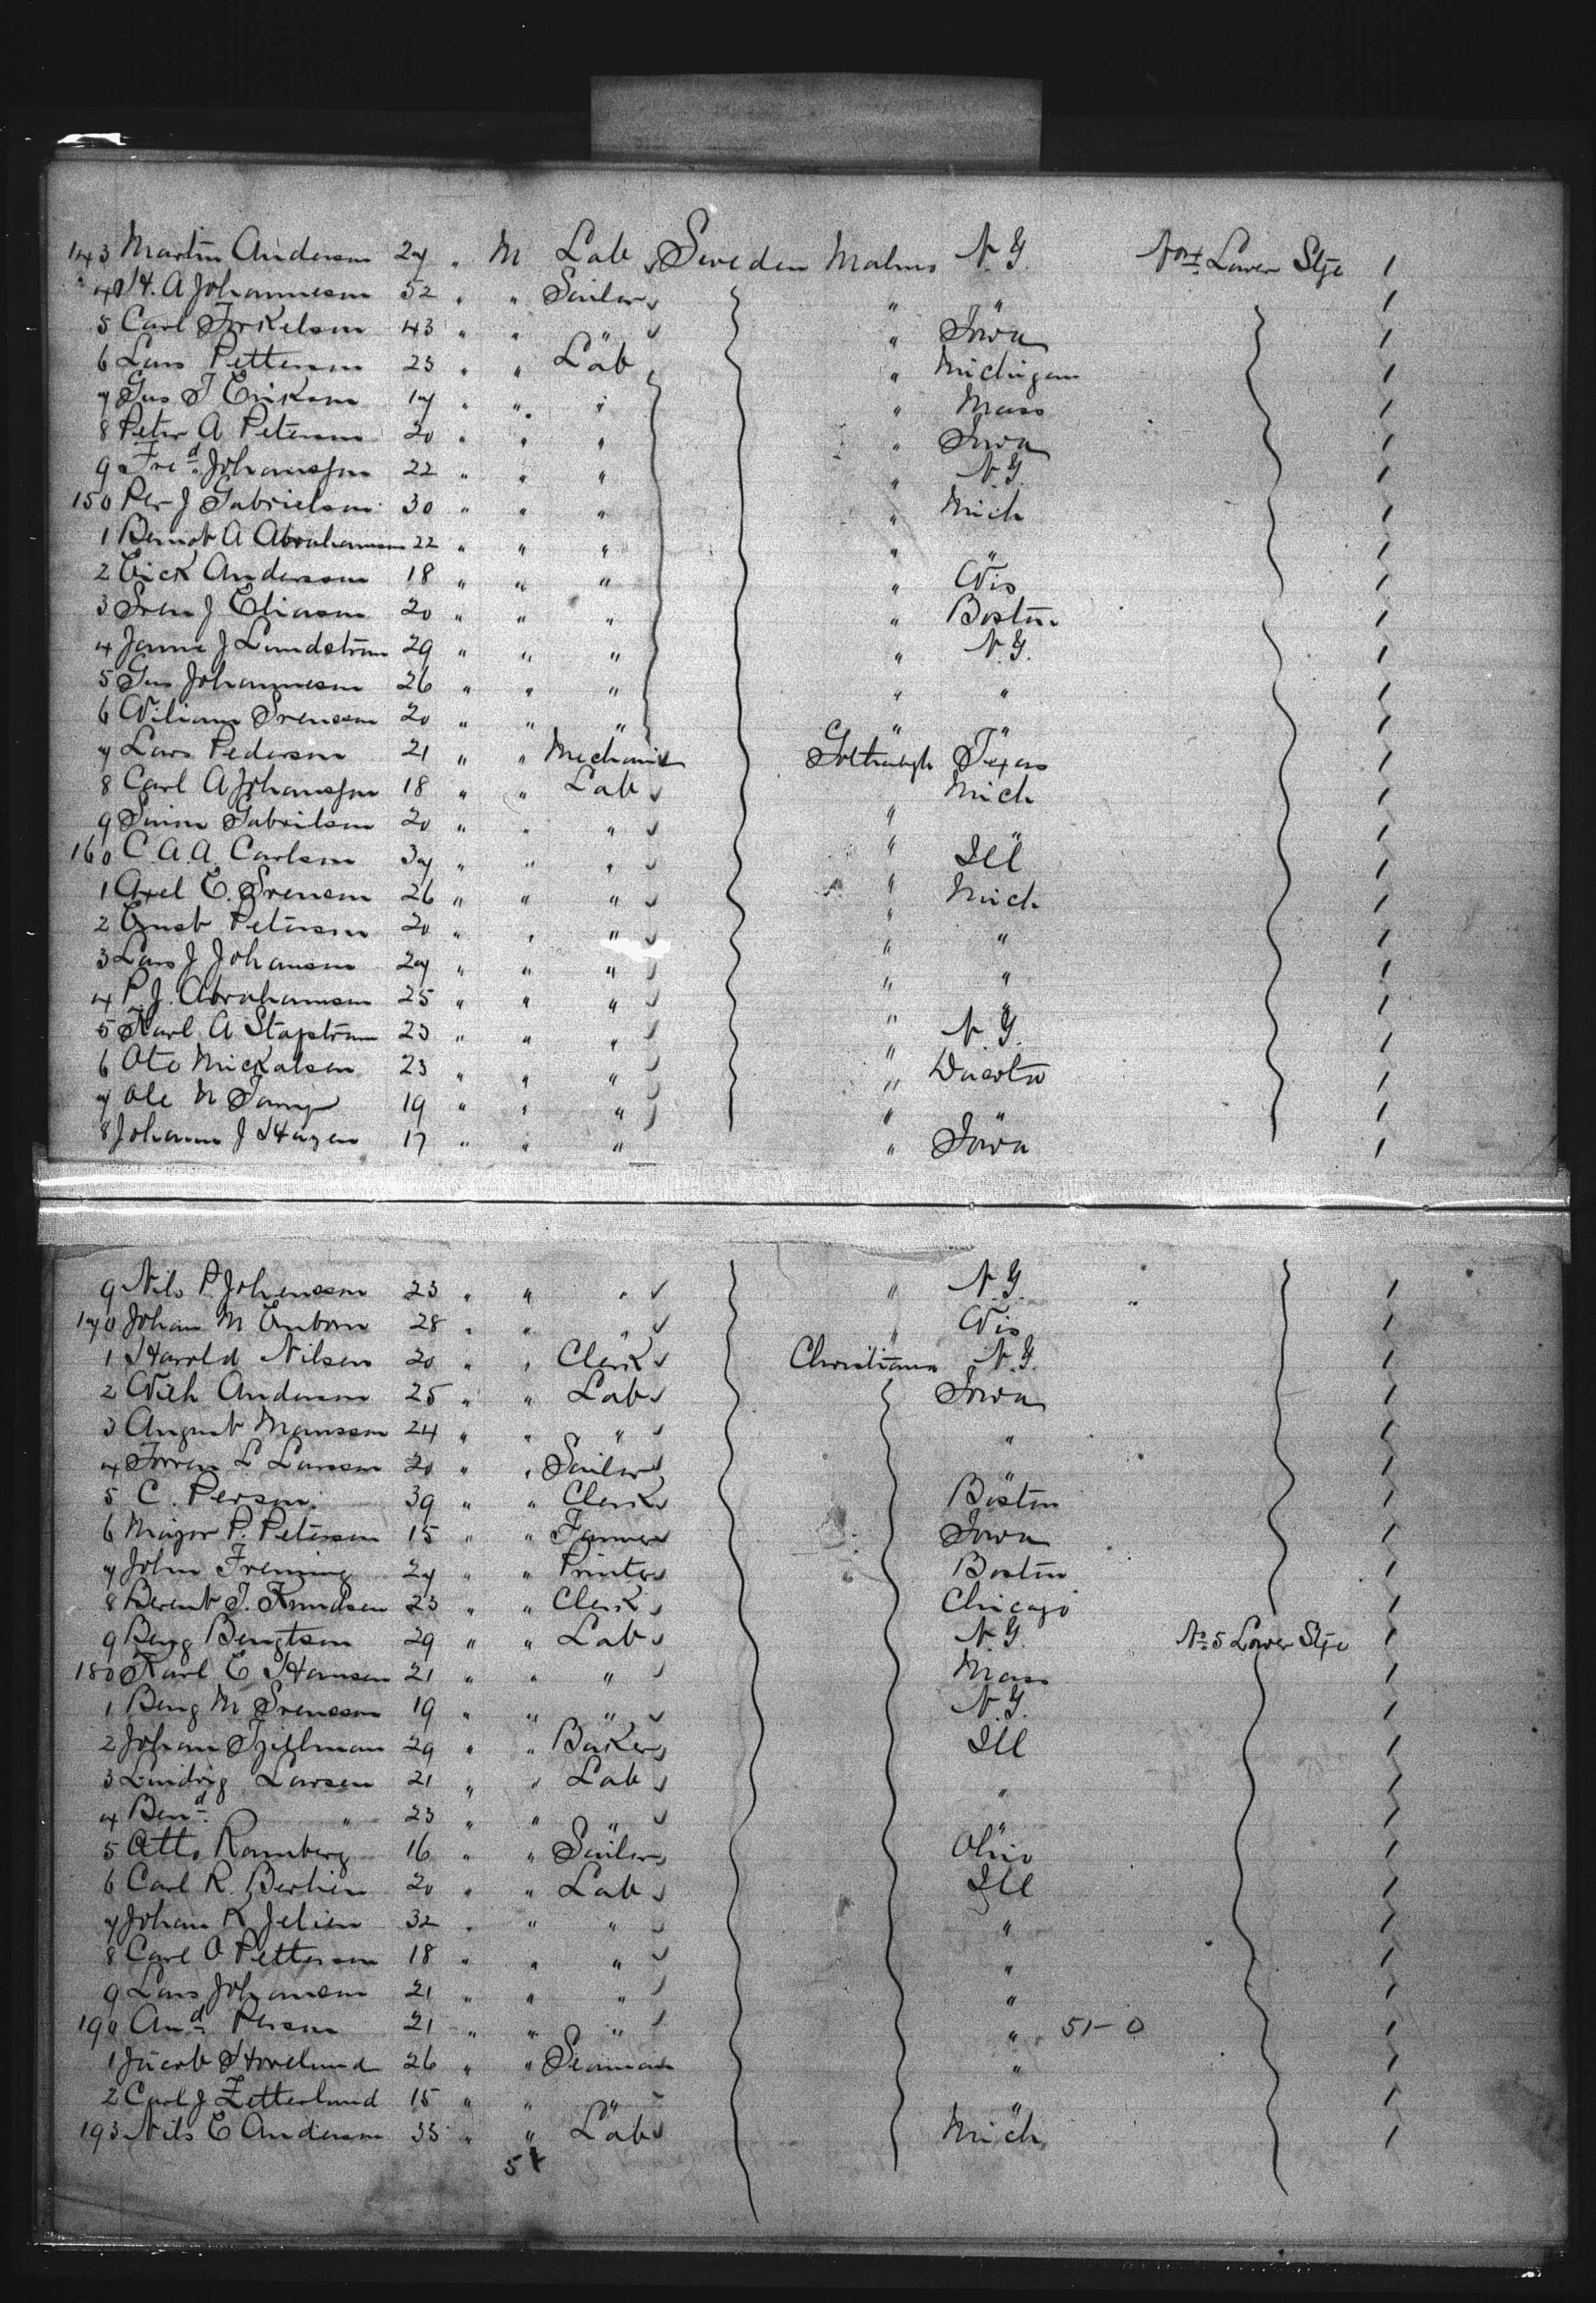 143 Martin Anderson 27 " M Lab Sweden Malmo N.Y. No 4 Lower Stge 1
4 H. A Johanneson 52 " " Sailor " " 1
5 Carl Torkelson 43 " " " " Iowa 1
6 Lars Petterson 23 " " Lab " Michigan 1
7 Gus J Erikson 17 " " " " Mass 1
8 Peter A Peterson 20 " " " " Iowa 1
9 Fred Johansson 22 " " " " N.Y. 1
150 Per J Gabrielson 30 " " " " Mich 1
1 A Abrahamson 22 " " " " " 1
2 Erick Anderson 18 " " " " Wis 1
3 Sven J Eliason 20 " " " " Boston 1
4 Janne J Lundstrom 29 " " " " N.Y. 1
5 Gus Johanneson 26 " " " " " 1
6 Wiliam Svensson 20 " " " " " 1
7 Lars Pederson 21 " " Mechanic Gothenburgh Texas 1
8 Carl A Johansson 18 " " Lab " Mich 1
9 Gabrilson 20 " " " " " 1
160 C. A. A. Carlson 37 " " " " Ill 1
1 Axel E. Svenson 26 " " " " Mich 1
2 Ernst Peterson 20 " " " " " 1
3 Lars J Johanson 27 " " " " " 1
4 P. J. Abrahamson 25 " " " " " 1
5 Karl A 23 " " " " N.Y. 1
6 Ole Mickalsen 23 " " " " Dacota 1
7 Ole N 19 " " " " " 1
8 Johann J Hagen 17 " " " " Iowa 1
9 Nils P. Johansson 23 " " " " N.Y. 1
170 Johan M Enbom 28 " " " " Wis 1
1 Harold Nilsen 20 " " Clerk Christiana N.Y. 1
2 Wilh Anderson 25 " " Lab Iowa 1
3 August Mansson 24 " " " " 1
4 L. Larsen 20 " " Sailor 1
5 C. Person 39 " " Clerk Boston 1
6 Major P. Peterson 15 " " Farmer Iowa 1
7 John Freming 27 " " Printer Boston 1
8 Berent T. Knudsen 23 " " Clerk Chicago 1
9 Beng Bengtson 29 " " Lab N.Y. No 5 Lower Stge 1
180 Karl E Hansen 21 " " " Mass 1
1 Beng M Svensson 19 " " " N.Y. 1
2 Johan 29 " " Baker Ill 1
3 Ludvig Larsen 21 " " Lab " 1
4 Bend " 23 " " " " 1
5 Otto Ramberg 16 " " Sailor Ohio 1
6 Carl R. 20 " " Lab Ill 1
7 Johan K Jelien 32 " " " " 1
8 Carl O Petterson 18 " " " " 1
9 Lars Johanson 21 " " " " 1
190 And Person 21 " " " " 51-0 1
1 Jacob Hovelund 26 " " Seaman " 1
2 Carl J Zetterlund 15 " " " " 1
193 Nils E Anderson 33 " " Lab Mich 1